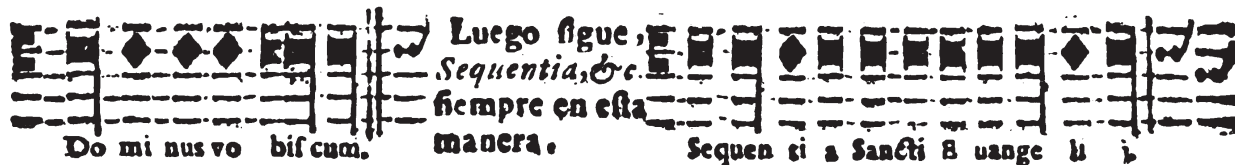 Do mi nus vo biſ cum.
Luego ſigue,
Sequentia, &c.
ſiempre en eſta
manera.
Sequen ti a Sancti E uange li j.